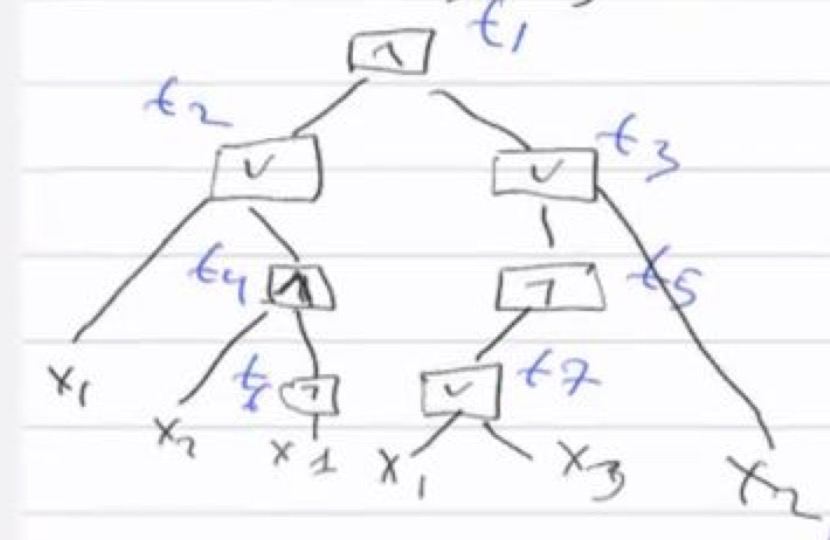 ∧ t1
t2
∨ ∨ t3
t4 ∧ ¬ t5
x1 t6 ¬ ∨ t7
x2 x1 x1 x3 x2